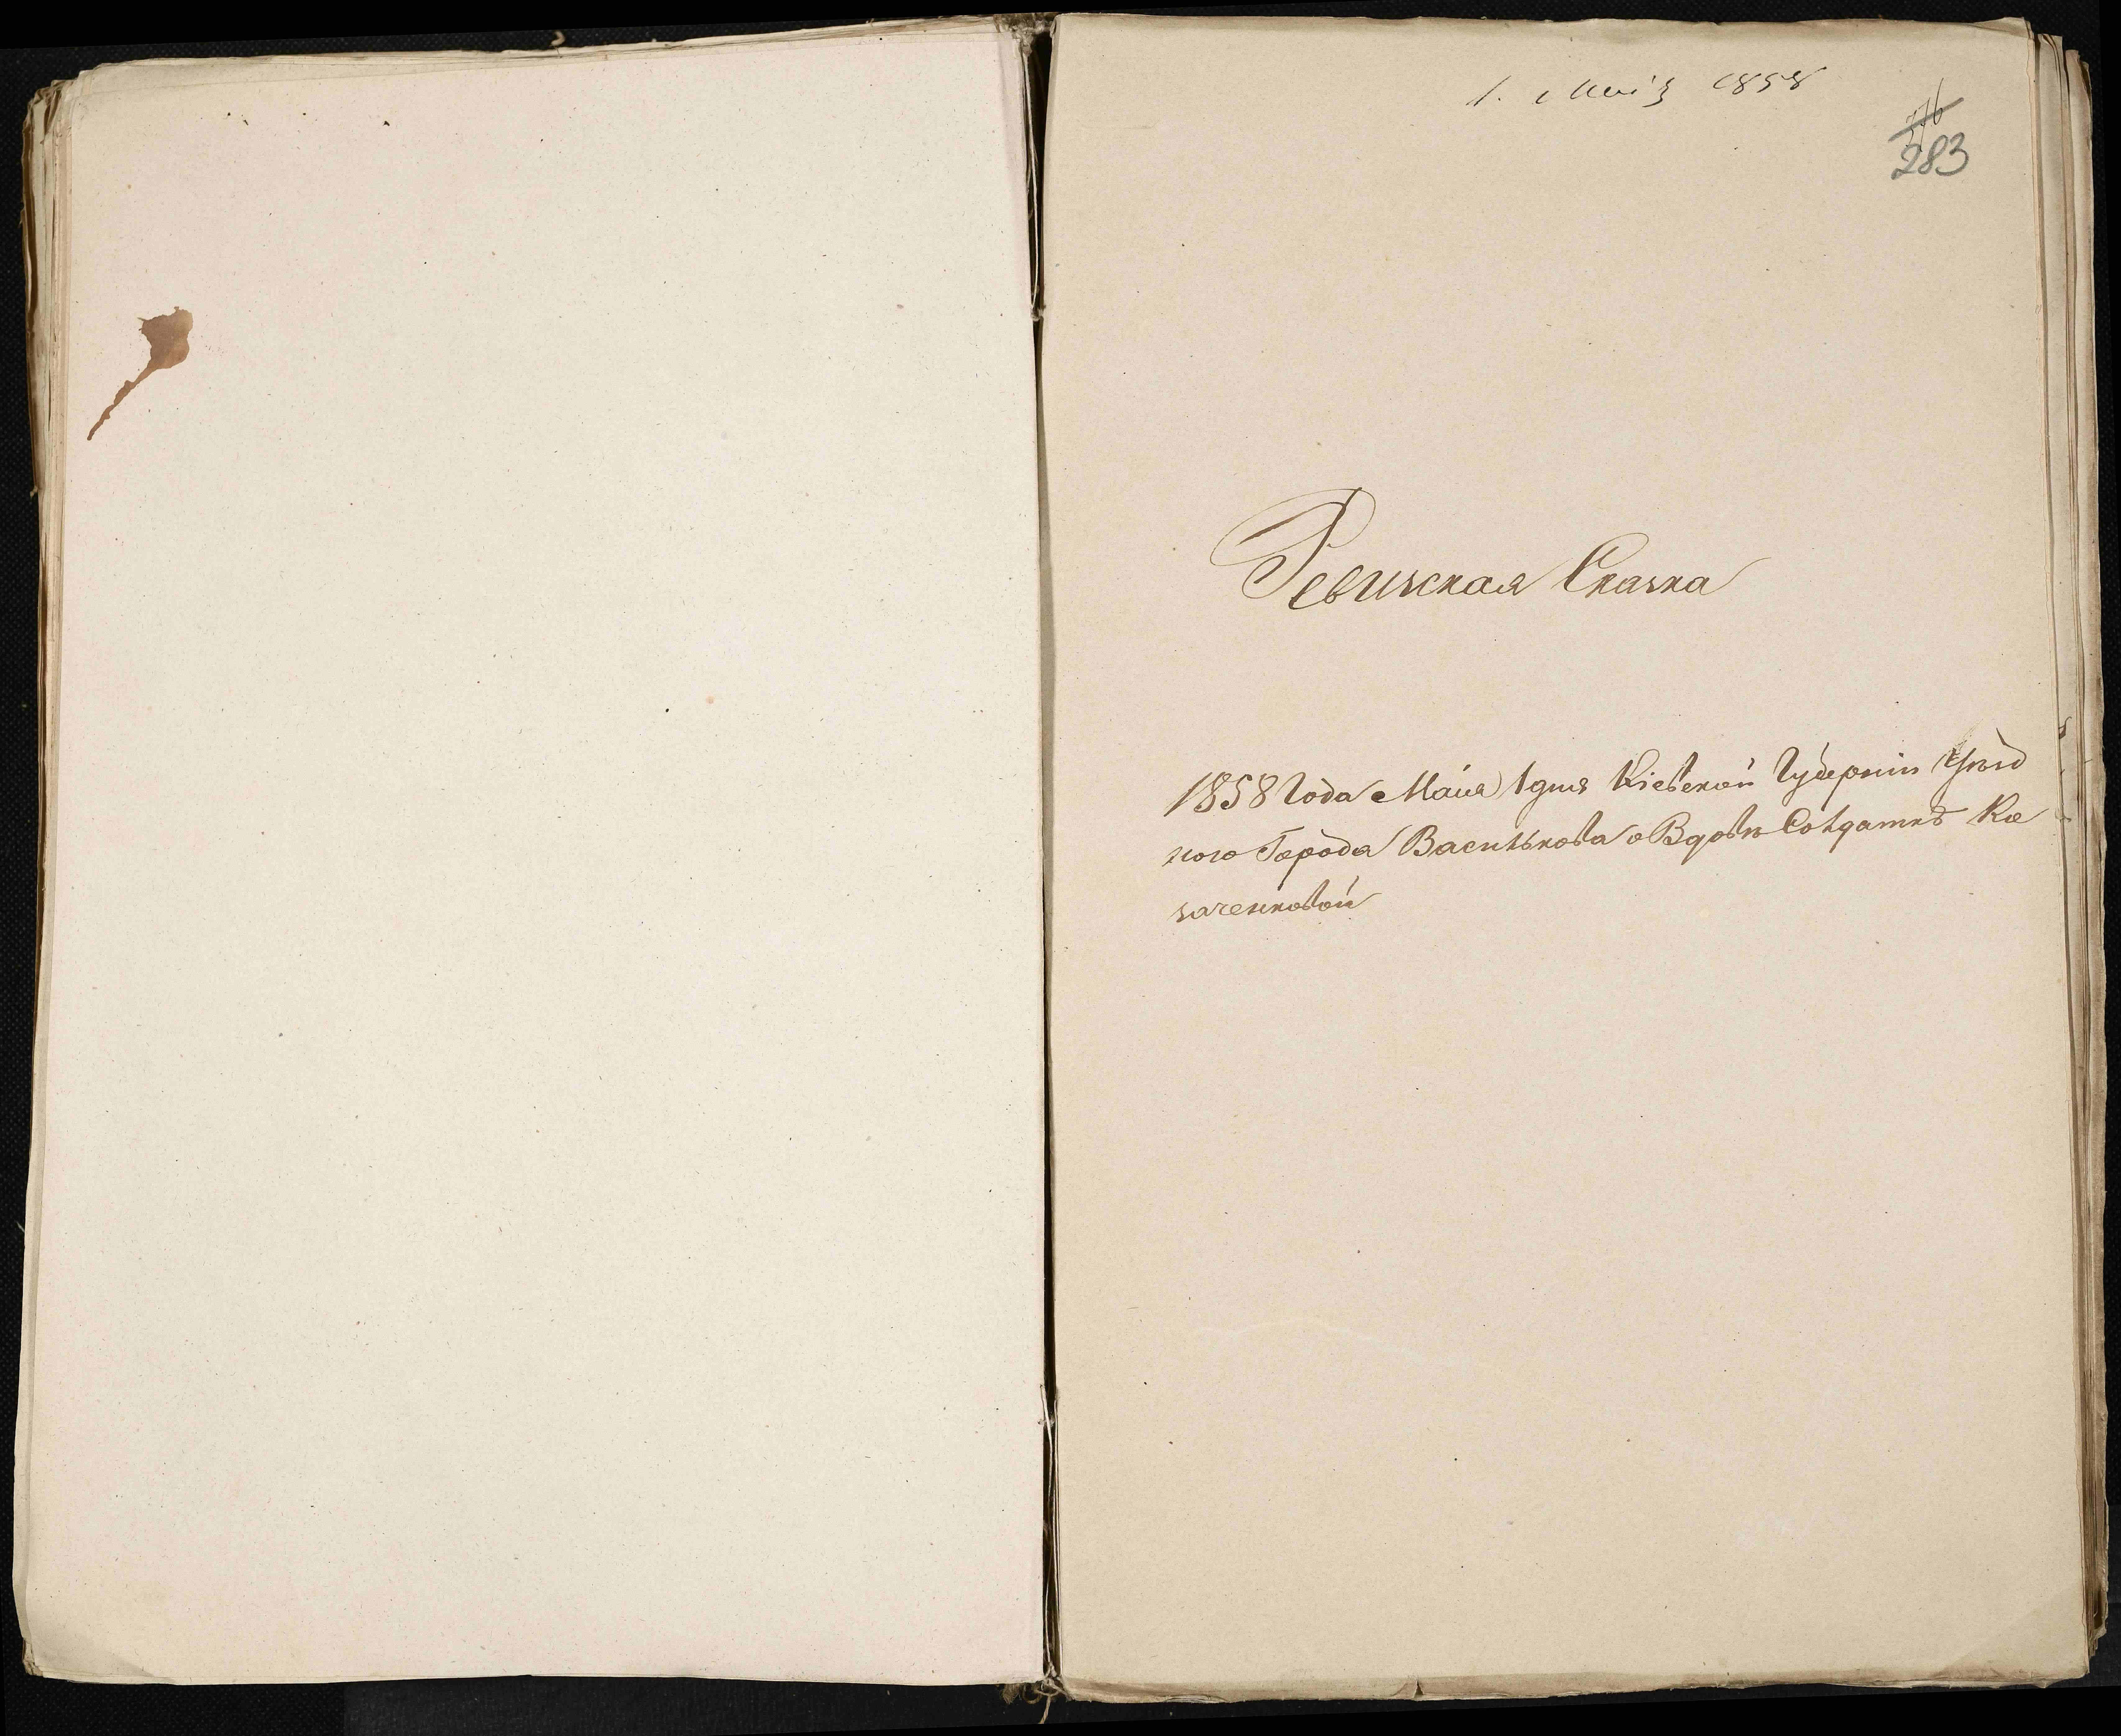 1. Маія 1858
283
Ревизская Сказка
1858 Года Маия 1 дня Кіевской Губерніи Уѣзд
ного Города Василькова о Вдовѣ Солдаткѣ Ка
заченковой